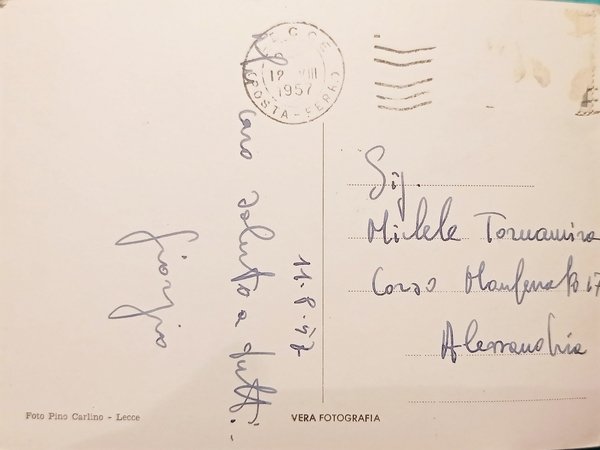 LECCE
12 VIII
1957
(POSTA-FERR.)
Un
caro saluto a tutti.
Giorgio
11.8.57
Sig.
Michele Tornamira
Corso 17
Alessandria
Foto Pino Carlino - Lecce
VERA FOTOGRAFIA